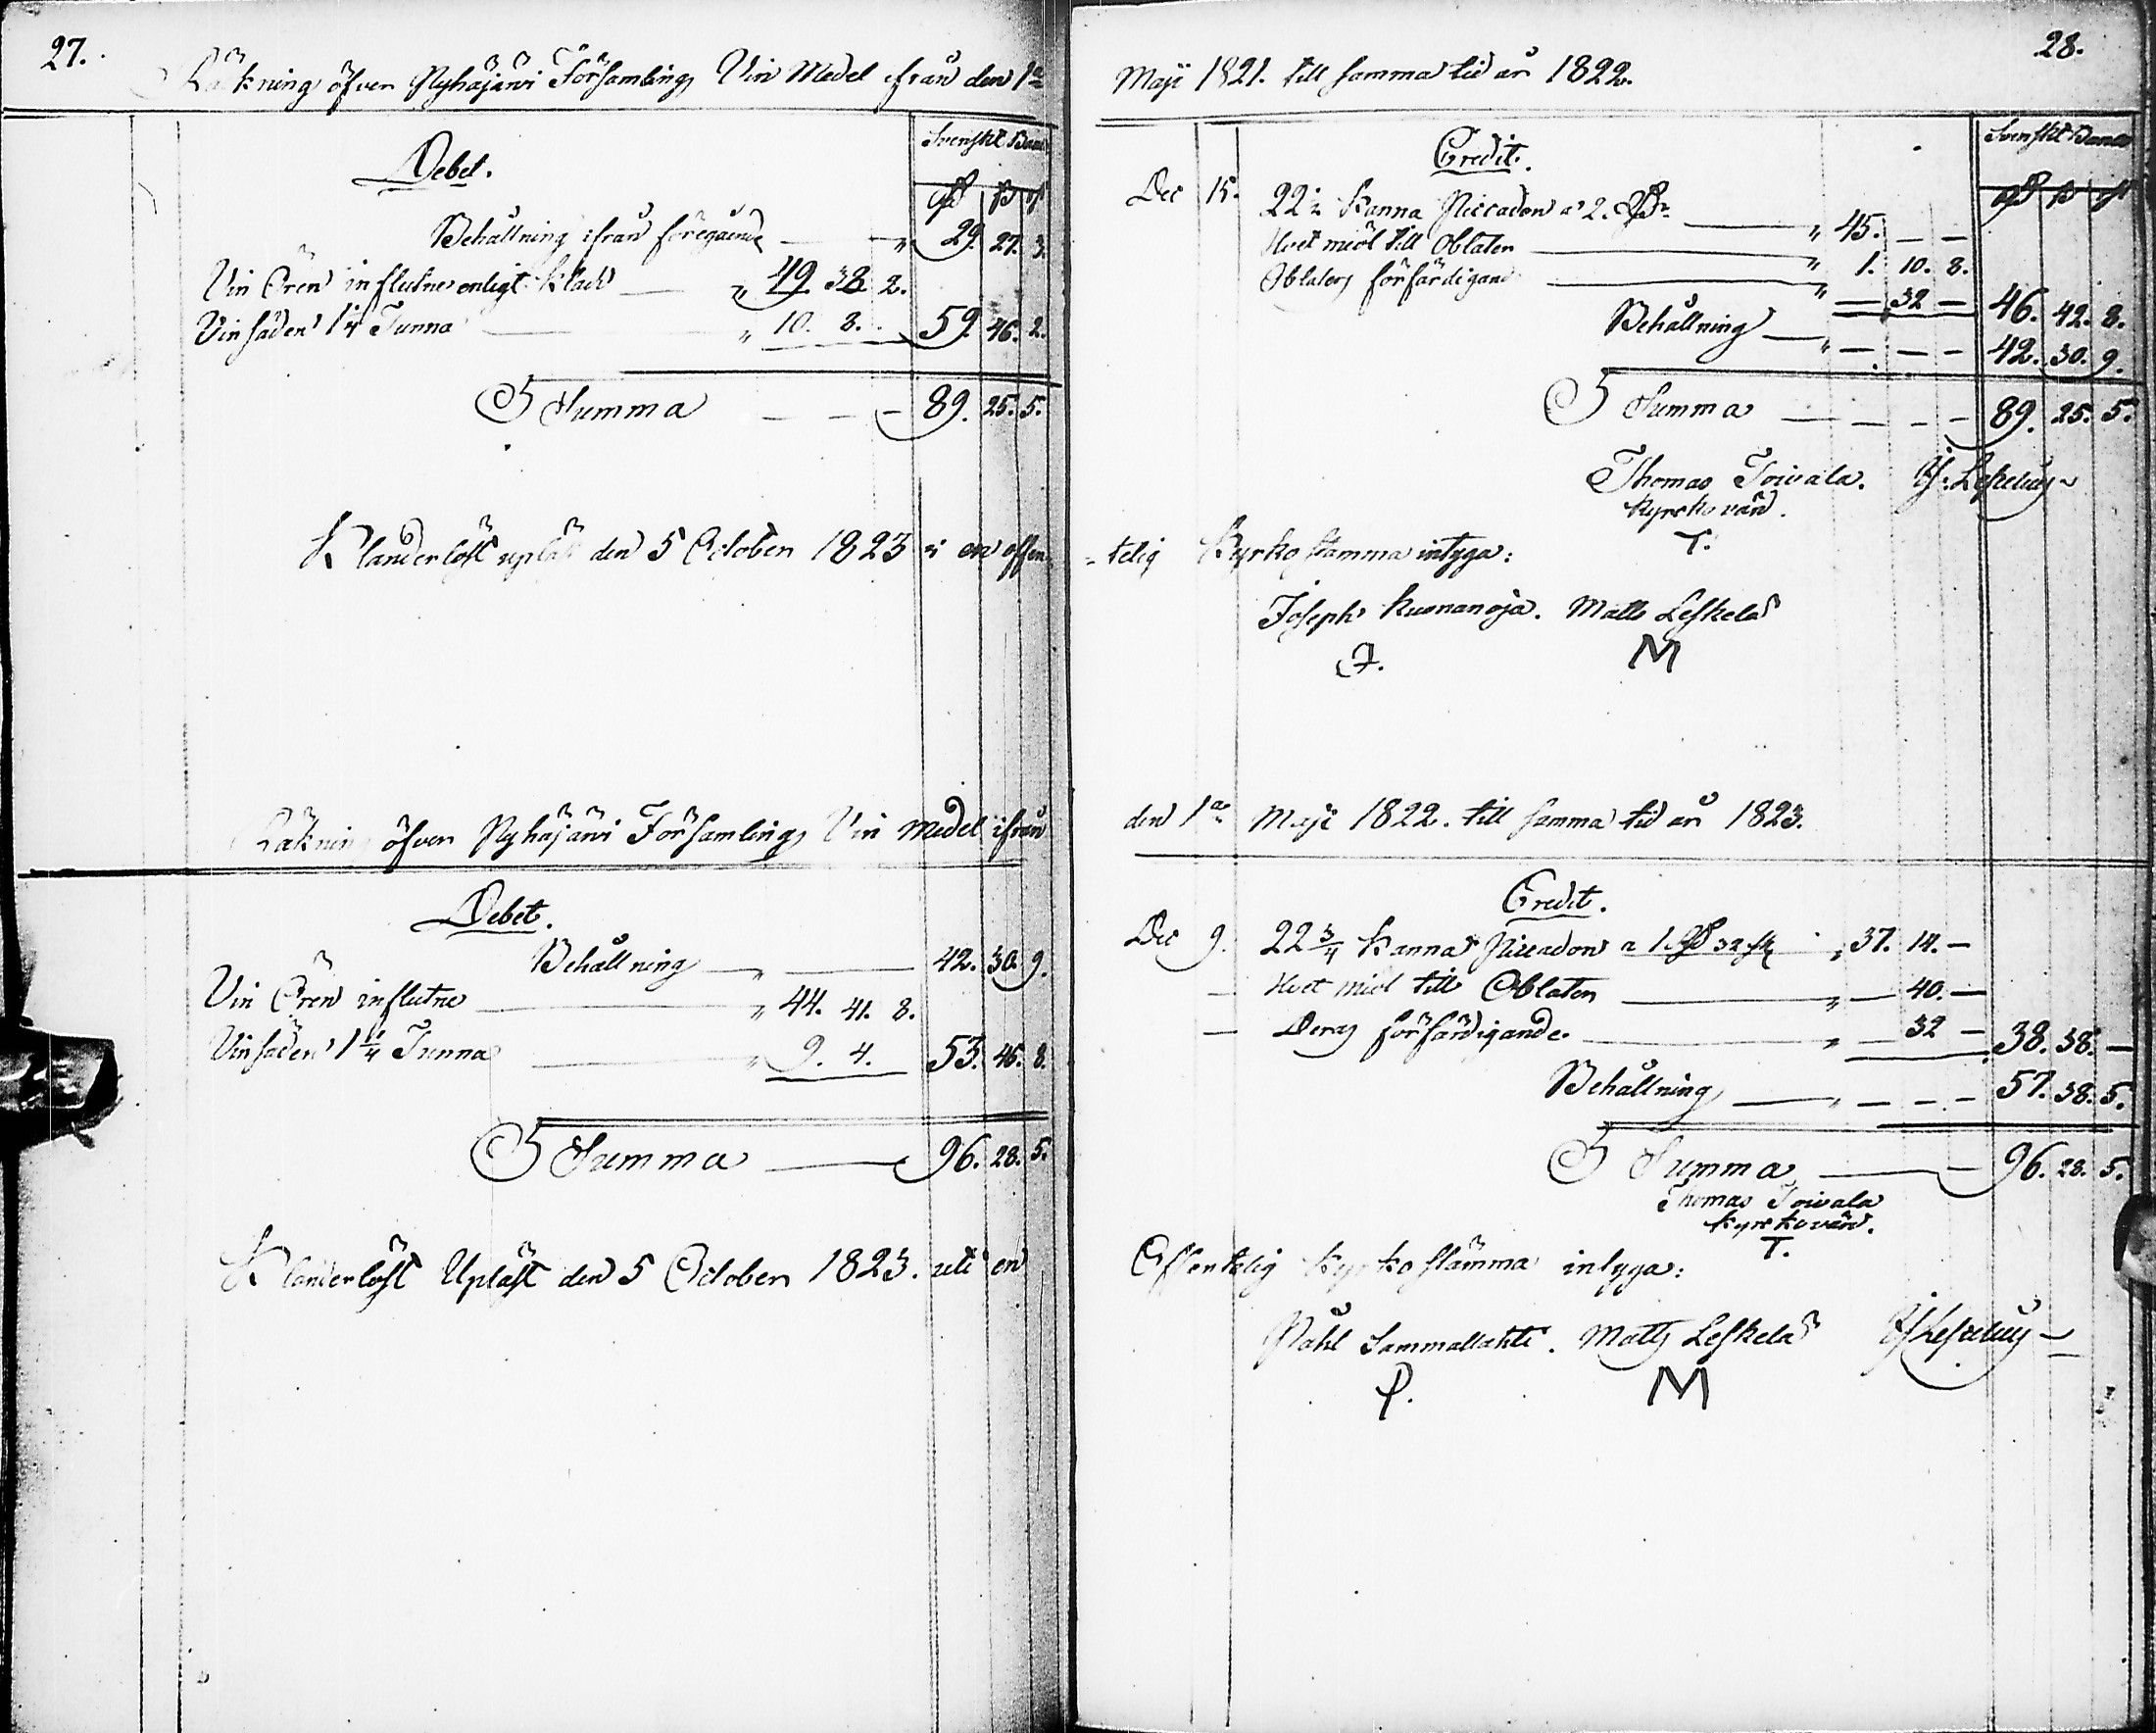 27.
Räkning öfver Pyhäjärvi Församlings Vin Medel ifrån den 1a
Svenskt Banco
Debet.
Rd ß rf
Behållning ifrån föregående — „ 29. 27. 3.
Vin Ören influtne enligt Kladd — „ 49. 38. 2.
Vinsäden 1 1/4 Tunna — „ 10. 8. . 59. 46. 2.
S Summa — — — 89. 25. 5.
Klanderlöst upläst den 5 October 1823 i en offen-
Räkning öfver Pyhäjärvi Församlings Vin Medel ifrån
Debet.
Behållning — „ — 42. 30. 9.
Vin Ören influtne — „ 44. 41. 8.
Vinsäden 1 1/4 Tunna — „ 9. 4. 53. 45. 8.
S Summa — 96. 28. 5.
Klanderlöst Upläst den 5 October 1823. uti en
28.
Maji 1821. till samma tid år 1822.
Svenskt Banco
Credit.
Rd ß rf
Dec 15. 22 1/2 Kanna Piccadon a 2. Rd — „ 45. — —
Hvet miöl till Oblater — „ 1. 10. 8.
Oblaters förfärdigand — „ — 32 — 46. 42. 8.
Behållning — „ — — — 42. 30. 9.
S Summa — — — — 89. 25. 5.
Thomas Toivala.
Kyrkovärd.
T.
-telig Kyrkostämma intyga:
Joseph Kuonanoja. Matts Leskelä
J. M
den 1a Maji 1822. till samma tid år 1823.
Credit.
Dec 9. 22 3/4 Kanna Piccadon a 1 Rd 32 sk „ 37. 14. —
— Hvet miöl till Oblater — „ — 40. —
— Deras förfärdigande. — „ — 32 — 38. 38. —
Behållning — „ — — — 57. 38. 5.
S Summa — — 96. 28. 5.
Thomas Toivala
Kyrkovärd.
T.
Offentelig Kyrkostämma intyga:
Påhl Sammallahti. Matts Leskelä
P. M